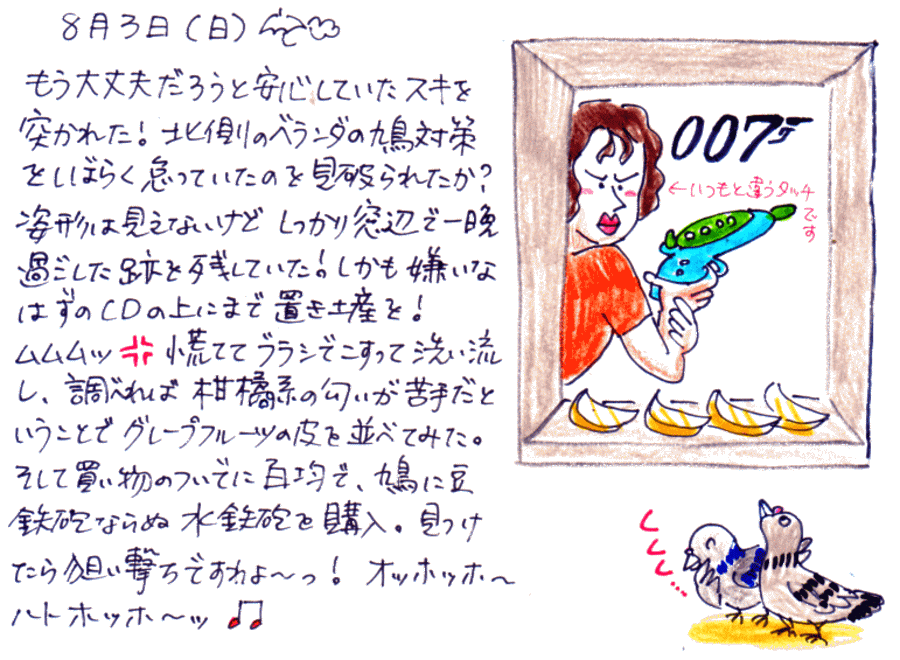 8月3日(日)
もう大丈夫だろうと安心していたスキを
突かれた!北側のベランダの鳩対策
をしばらく怠っていたのを見破られたか?
姿形は見えないけど しっかり窓辺で一晩
過ごした跡を残していた!しかも嫌いな
はずのCDの上にまで置き土産を!
ムムムッ 慌ててブラシでこすって洗い流
し、調べれば 柑橘系の匂いが苦手だと
いうことでグレープフルーツの皮を並べてみた。
そして買い物のついでに百均で、鳩に豆
鉄砲ならぬ 水鉄砲を購入。見つけ
たら狙い撃ちですわよ〜っ! オッホッホ〜
ハトホッホ〜ッ♫
007
←いつもと違うタッチ
です
くくく…